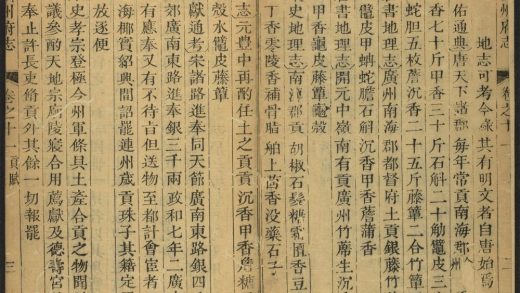 州府志
卷之十
地志可考今彔其有明文者自唐始為
佑通典唐天下諸郡每年常貢南海郡
香七十斤甲香三十斤石斛二十觔鼊皮三
蛇胆五枚藤沉香二十五斤藤簟二合竹簟
書地理志廣州南海郡都督府土貢銀藤竹
鼊皮甲蚺蛇膽石斛沉香甲香薝蒲香
書地理志開元中嶺南有貢廣州竹蓆生沉
甲香龜皮藤簟鼊殼
史地理志南海郡貢胡椒石髮糖霜檳香豆
丁香零陵香補骨脂舶上茴香没藥石子
志元豐中再酌任土之貢貢沉香甲香詹糖
殼水鼊皮藤簟
獻通考朱諸路進奉同天節廣南東路銀四
郊廣南東路進奉銀三千兩政和七年二廣
有應奉又有不待旨但送物至都計會宦者
海椰實紹興間詔罷連州歲貢珠子其籍定
放逐便
史孝宗登極令州軍條具土產合貢之物聞
議參酌天地宗廟陵寢合用薦獻及德壽宮
奉止許長吏脩貢外其餘一切報罷
州府志
卷之十
貢賦
三